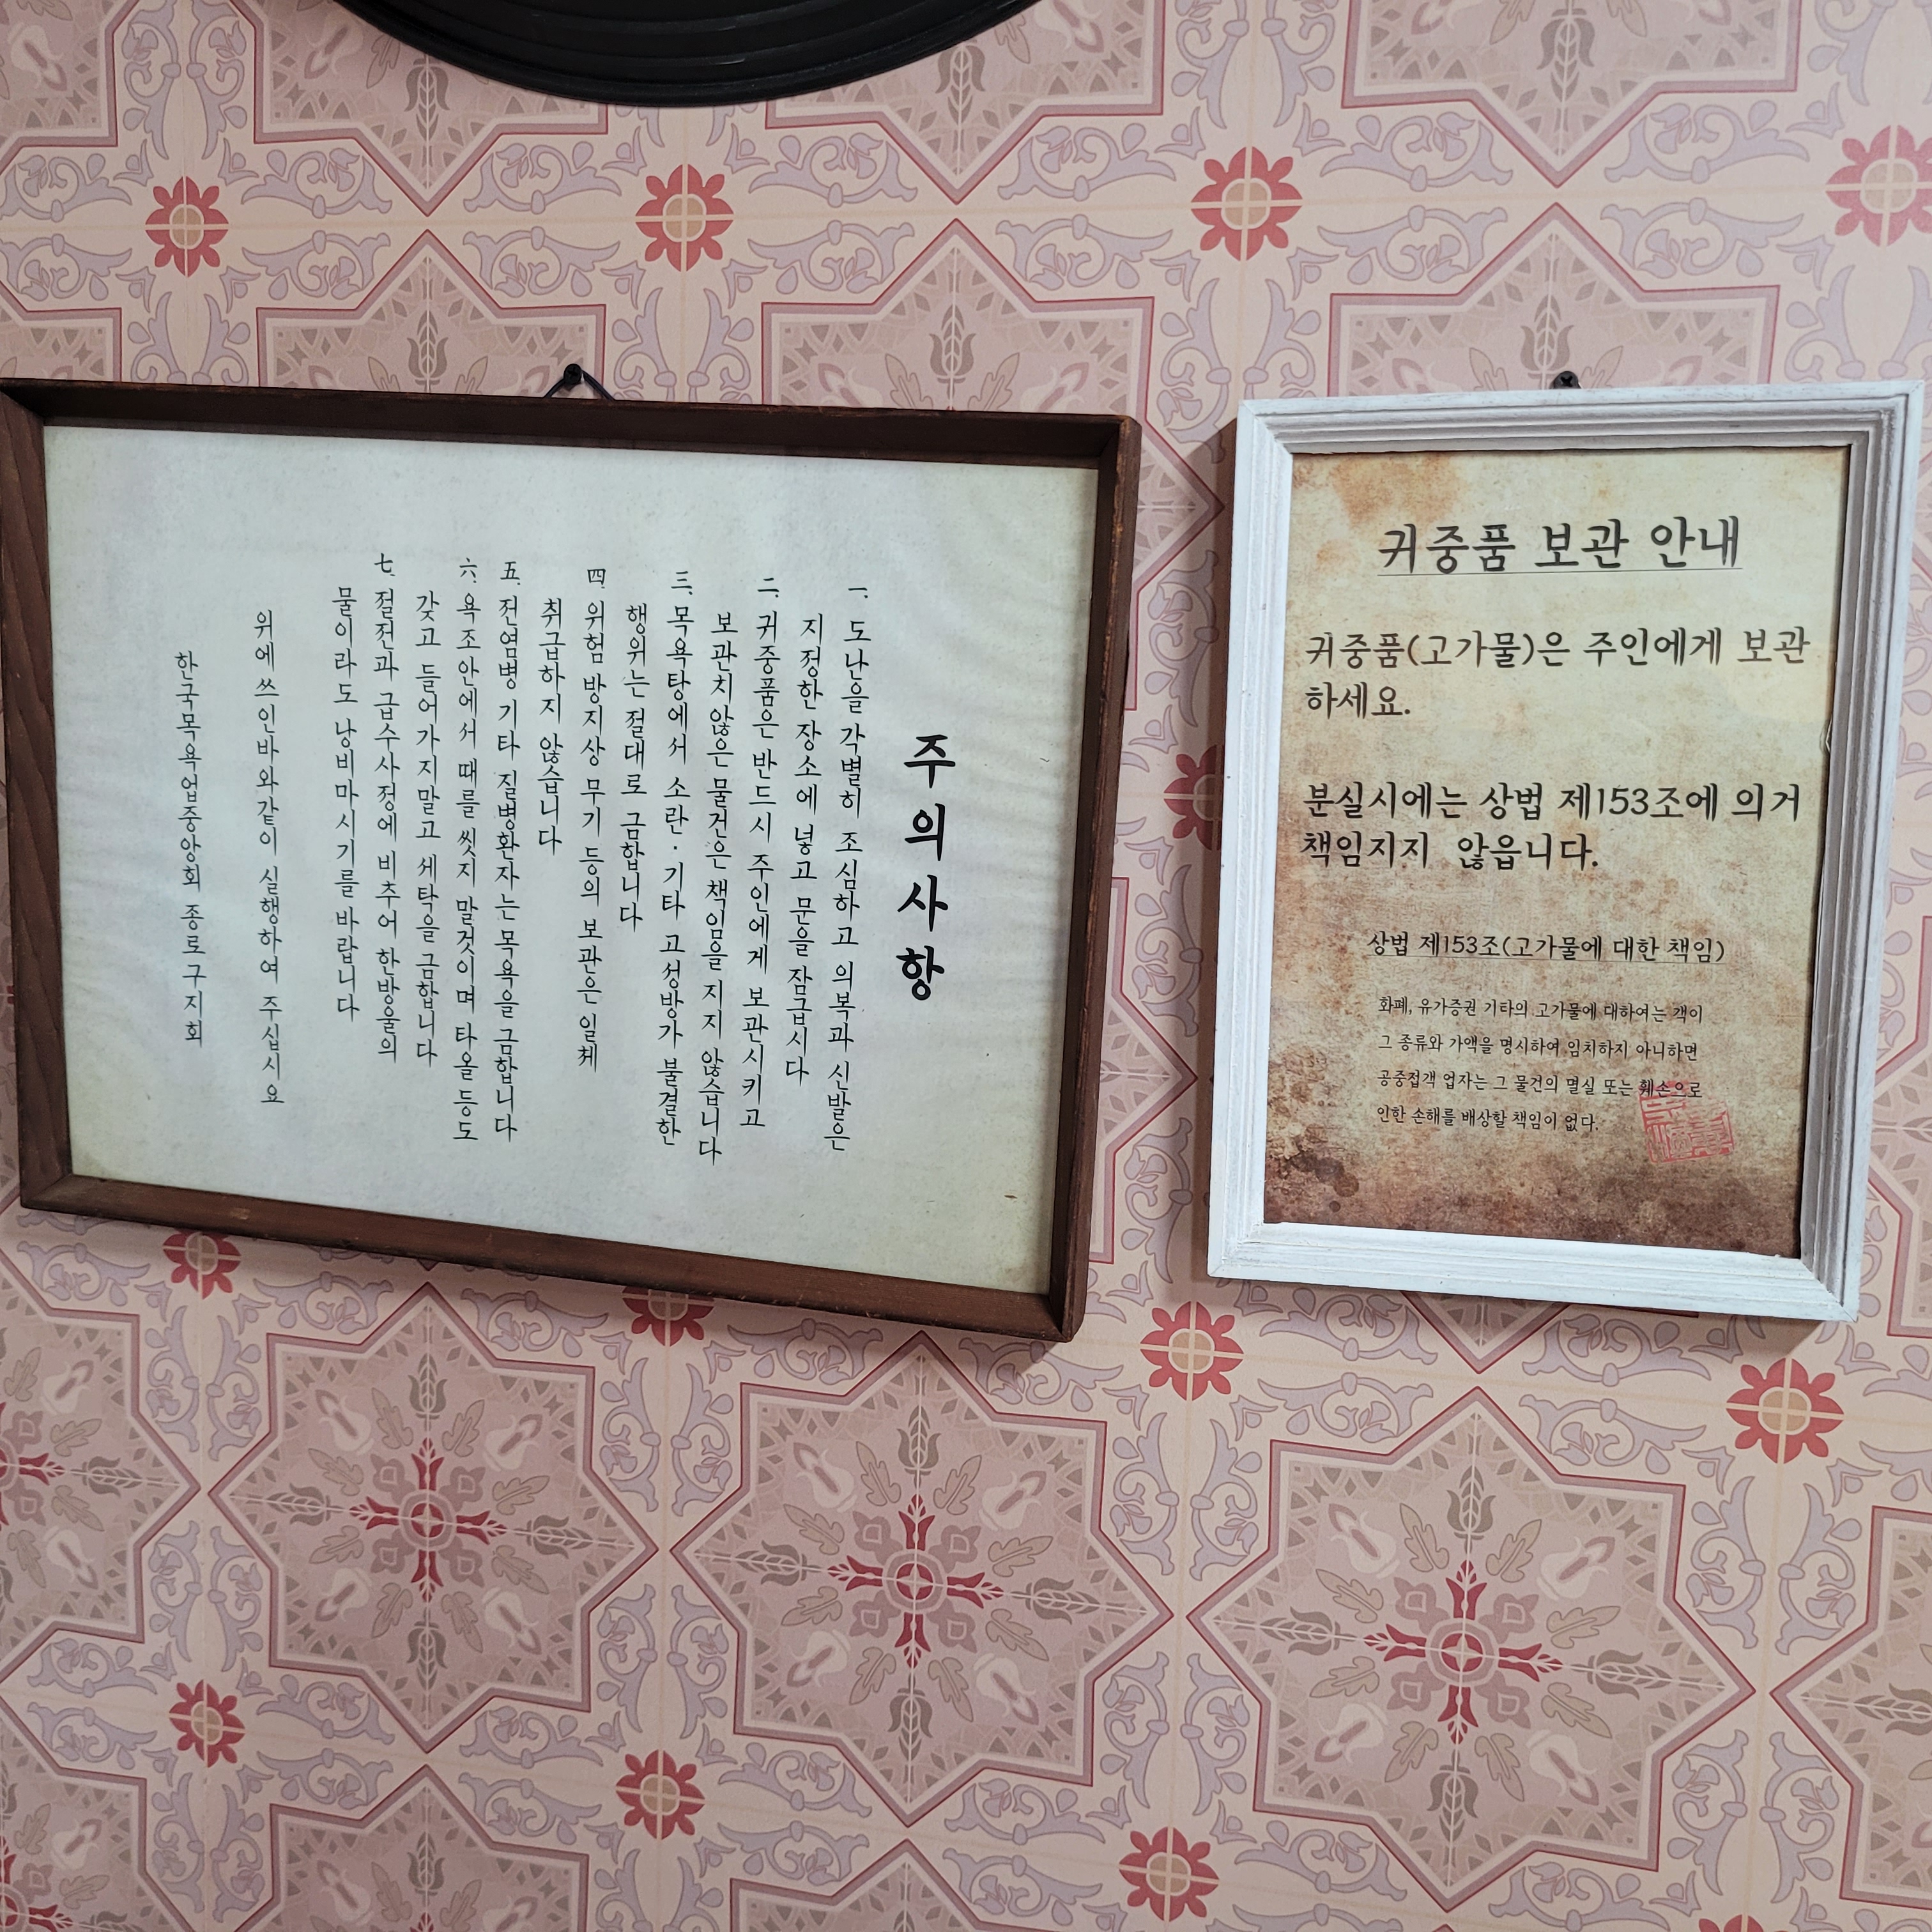 주의사항
一. 도난을 각별히 조심하고 의복과 신발은
지정한 장소에 넣고 문을 잠급시다
二. 귀중품은 반드시 주인에게 보관시키고
보관치않은 물건은 책임을 지지 않습니다
三. 목욕탕에서 소란·기타 고성방가 불결한
행위는 절대로 금합니다
四. 위험 방지상 무기 등의 보관은 일체
취급하지 않습니다
五. 전염병 기타 질병환자는 목욕을 금합니다
六. 욕조안에서 때를 씻지 말것이며 타올 등도
갖고 들어가지말고 세탁을 금합니다
七. 절전과 급수사정에 비추어 한방울의
물이라도 낭비마시기를 바랍니다
위에 쓰인바와같이 실행하여 주십시요
한국목욕업중앙회 종로구지회
귀중품 보관 안내
귀중품(고가물)은 주인에게 보관
하세요.
분실시에는 상법 제153조에 의거
책임지지 않읍니다.
상법 제153조(고가물에 대한 책임)
화폐, 유가증권 기타의 고가물에 대하여는 객이
그 종류와 가액을 명시하여 임치하지 아니하면
공중접객 업자는 그 물건의 멸실 또는 훼손으로
인한 손해를 배상할 책임이 없다.